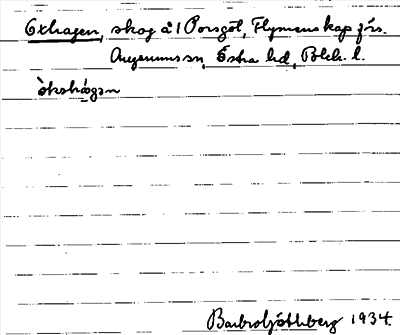 Oxhagen, skog å 1 Porsgöl, Flymens kap förs.
Augerums sn, Östra hd, Blek. l.
òkshágən
Barbro Ljóthberg 1934.